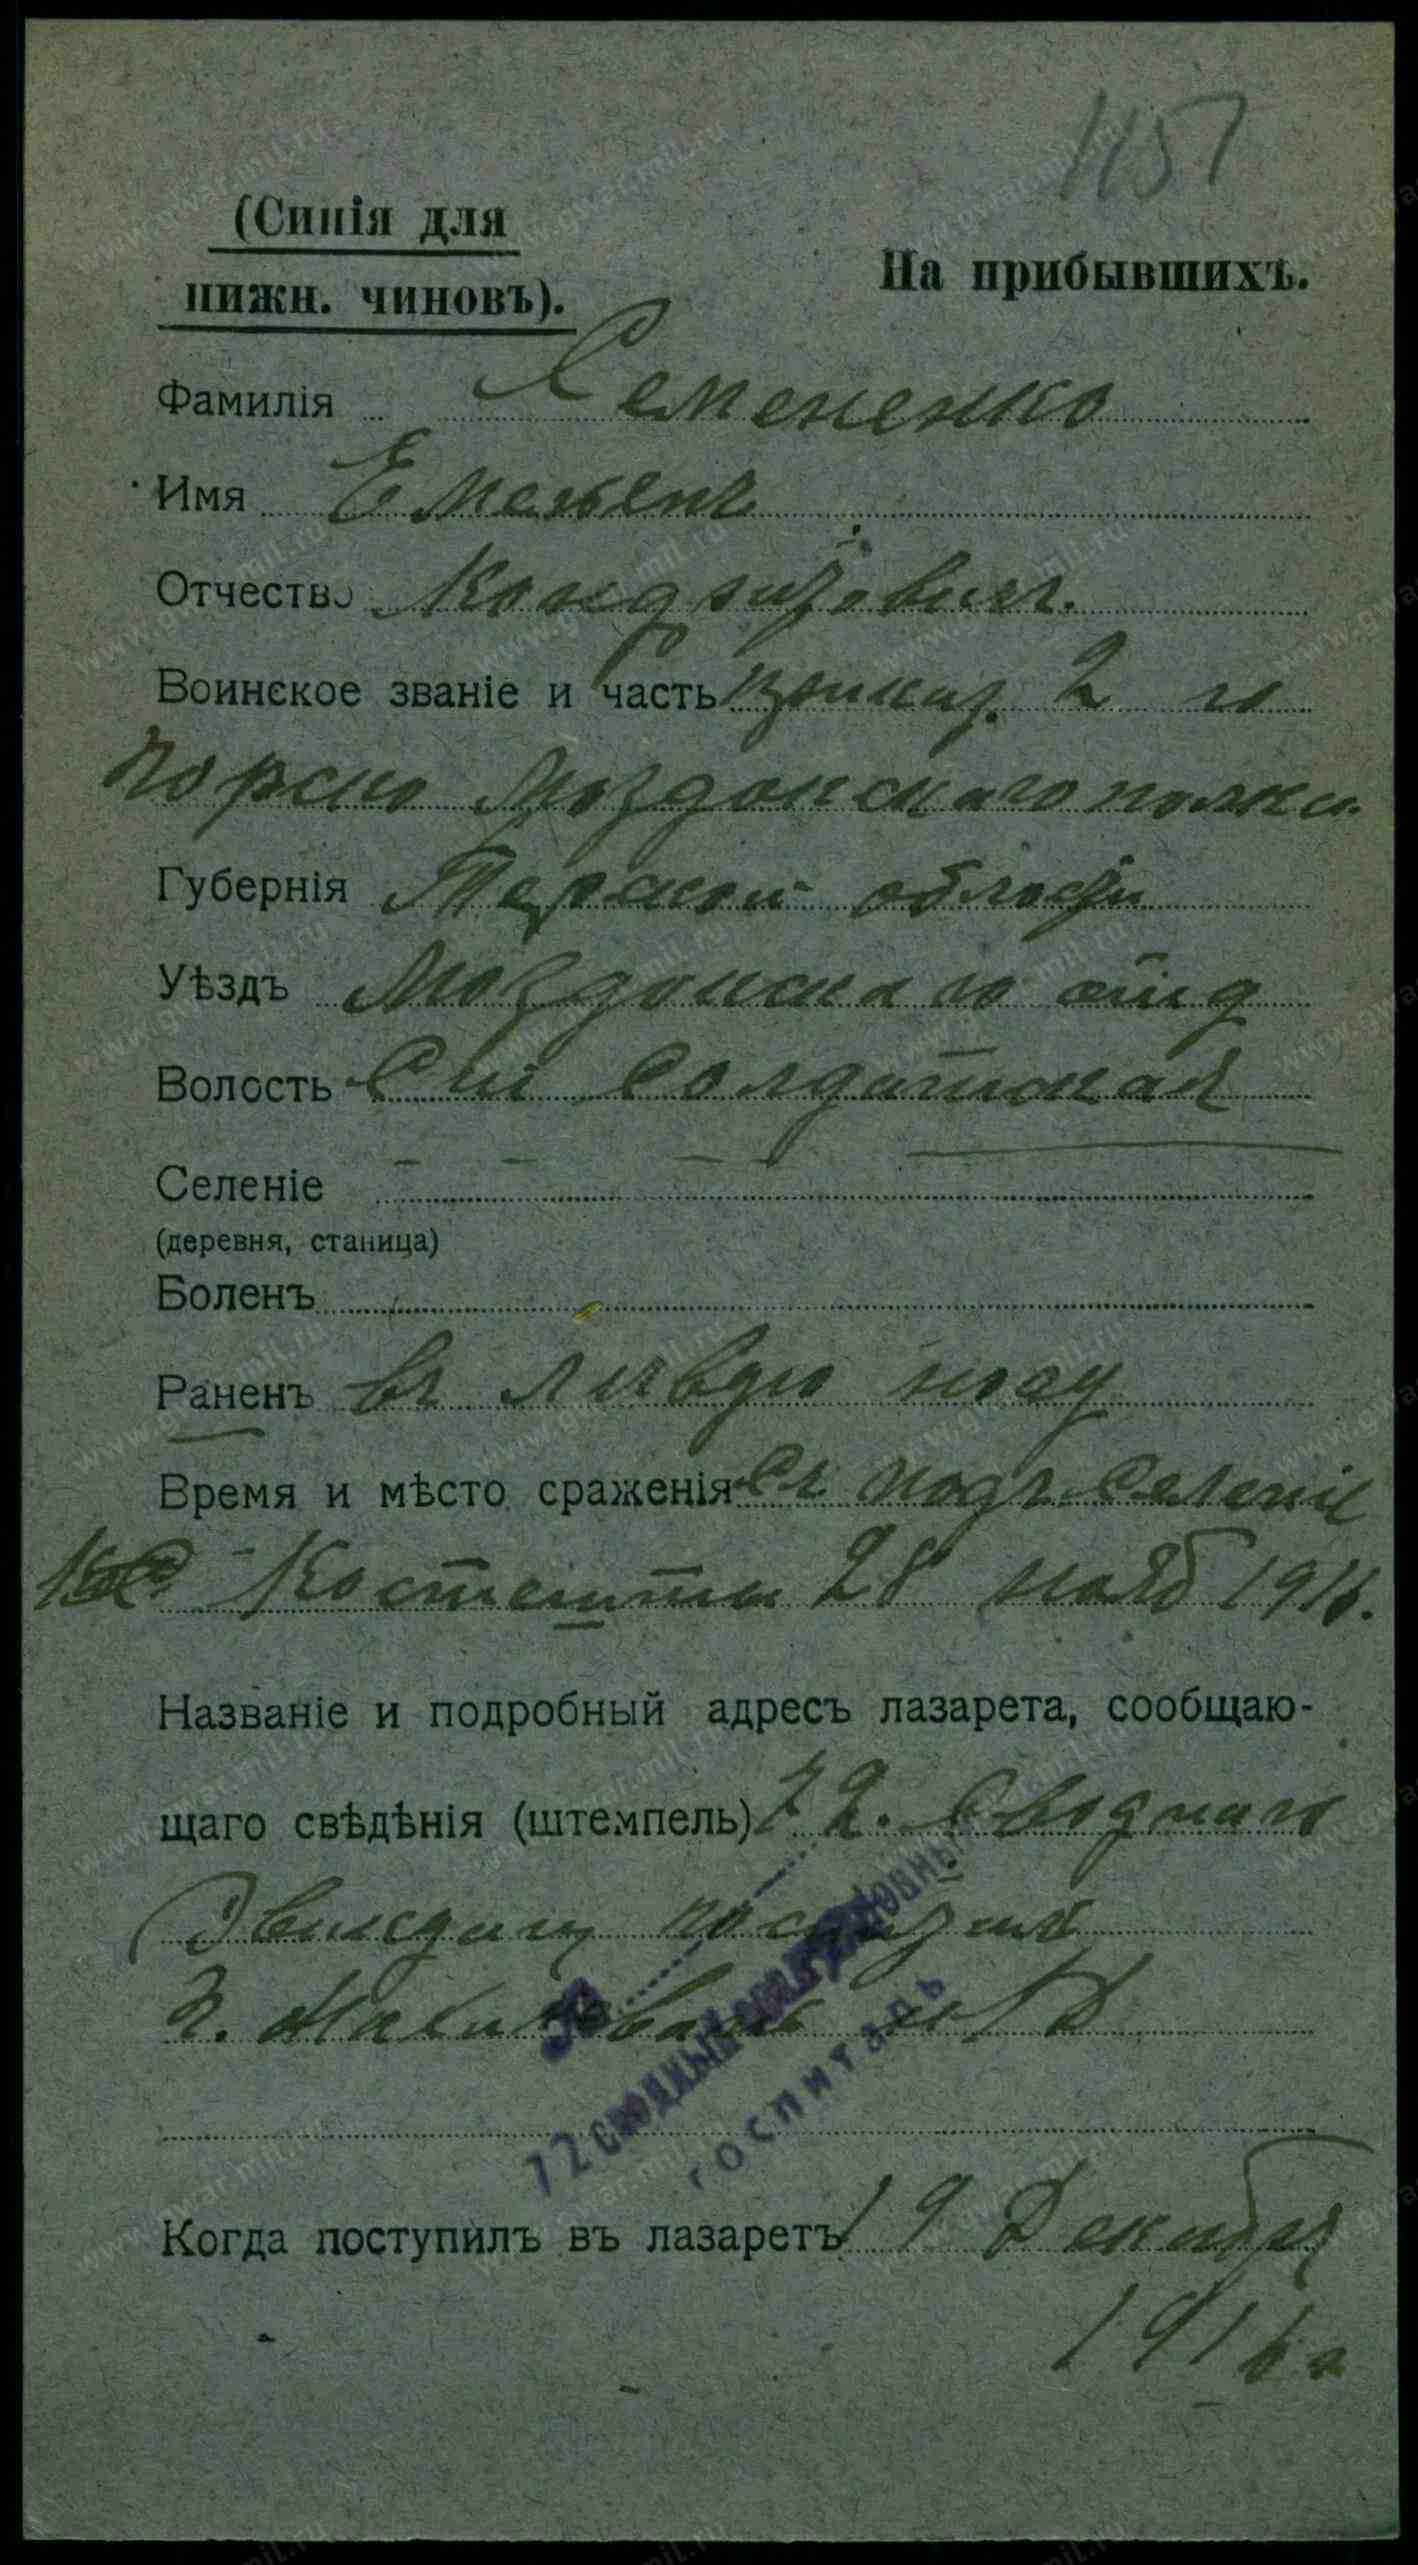 1157
(Синія для
нижн. чиновъ).
На прибывшихъ.
Фамилія Семененко
Имя Емельянъ
Отчество
Воинское званіе и часть приказ. 2 го
Моздокскаго полка
Губернія Терской области
Уѣздъ Моздокскаго отд
Волость Солдатская
Селеніе
(деревня, станица)
Боленъ
Раненъ въ лѣвую ногу
Время и мѣсто сраженія подъ Селеніе
28 нояб 1916.
Названіе и подробный адресъ лазарета, сообщаю-
щаго свѣдѣнія (штемпель) 72. Своднаго
72 сводный эвакуаціонный
госпиталь
Когда поступилъ въ лазаретъ 19 Декабря
1916 г